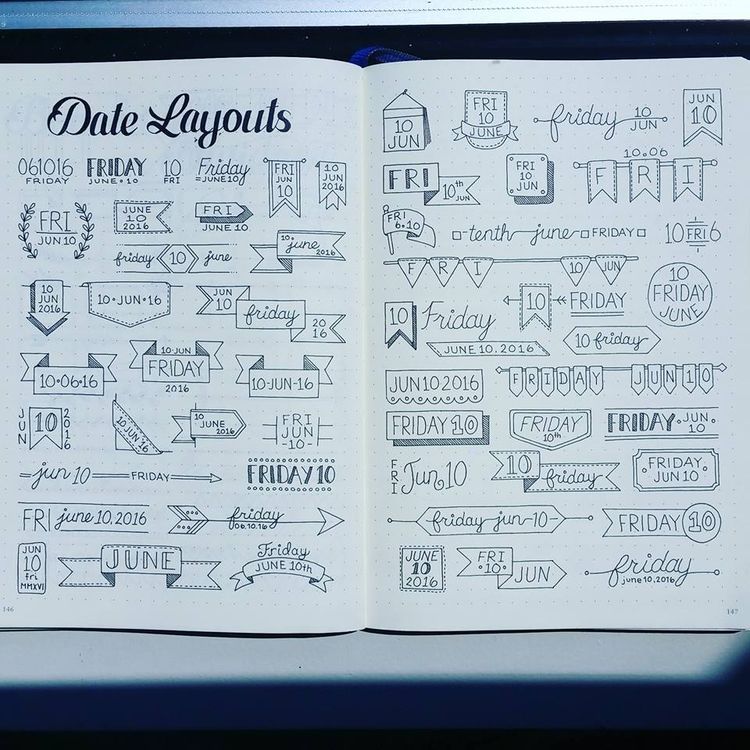 Date Layouts
061016
FRIDAY
FRIDAY
JUNE • 10
10
FRI
Friday
=JUNE10=
FRI
JUN
10
10
JUN
2016
FRI
JUN 10
JUNE
10
2016
FRI
JUNE 10
friday 10 june
10.
june
2016
10
JUN
2016
10•JUN•16
JUN
10
friday
20
16
10•06•16
10•JUN
FRIDAY
2016
10-JUN-16
JUN
10
2016
10 JUN 16
10
JUNE
2016
FRI
JUN
-10-
jun 10 — FRIDAY
FRIDAY 10
FRI june.10.2016
friday
06.10.16
JUN
10
fri
MMXVI
JUNE
Friday
JUNE 10th
146
10
JUN
FRI
10
JUNE
friday 10
JUN
JUN
10
FRI
10th
JUN
FRI
10
JUN
10.06
FRI
FRI
6•10
tenth june FRIDAY
10 FRI 6
FRI 10 JUN
10
Friday
JUNE.10.2016
10
FRIDAY
10
FRIDAY
JUNE
10 friday
JUN 10 2016
FRIDAY JUN 10
FRIDAY 10
FRIDAY
10th
FRIDAY • JUN •
10
FRI
Jun 10
10
friday
FRIDAY
JUN 10
friday-jun-10-
FRIDAY 10
JUNE
10
2016
FRI
•10•
JUN
friday
june 10, 2016
147